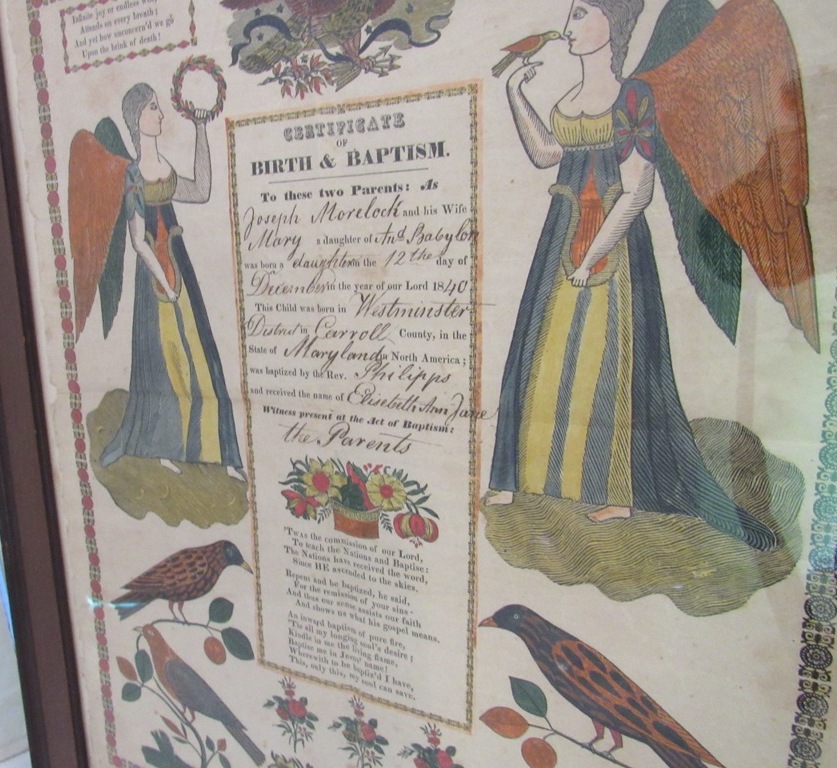 Infinite joy or endless
Attends on every breath;
And yet how unconcern'd we go
Upon the brink of death!
CERTIFICATE
OF
BIRTH & BAPTISM.
To these two Parents: As
Joseph Morelock and his Wife
Mary a daughter of And Babylon
was born a daughter in the 12the day of
December in the year of our Lord 1840
This Child was born in Westminster
District in Carroll County, in the
State of Maryland in North America;
was baptized by the Rev. Philipps
and received the name of Elisebeth Ann Jane
Witness present at the Act of Baptism:
the Parents
'Twas the commission of our Lord,
To teach the Nations and Baptise:
The Nations have received the word,
Since HE ascended to the skies.
Repent and be baptized, he said,
For the remission of your sins-
And thus our sense assists our faith
And shows us what his gospel means.
An inward baptism of pure fire,
'Tis all my longing soul's desire;
Kindle in me the living flame,
Baptise me in Jesus' name!
Wherewith to be baptiz'd I have,
This, only this, my soul can save.